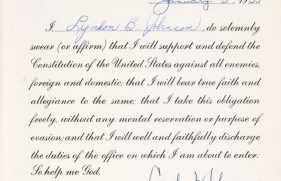 January 3, 19
I, Lyndon B. Johnson, do solemnly
swear (or affirm) that I will support and defend the
Constitution of the United States against all enemies,
foreign and domestic; that I will bear true faith and
allegiance to the same; that I take this obligation
freely, without any mental reservation or purpose of
evasion; and that I will well and faithfully discharge
the duties of the office on which I am about to enter:
So help me God.